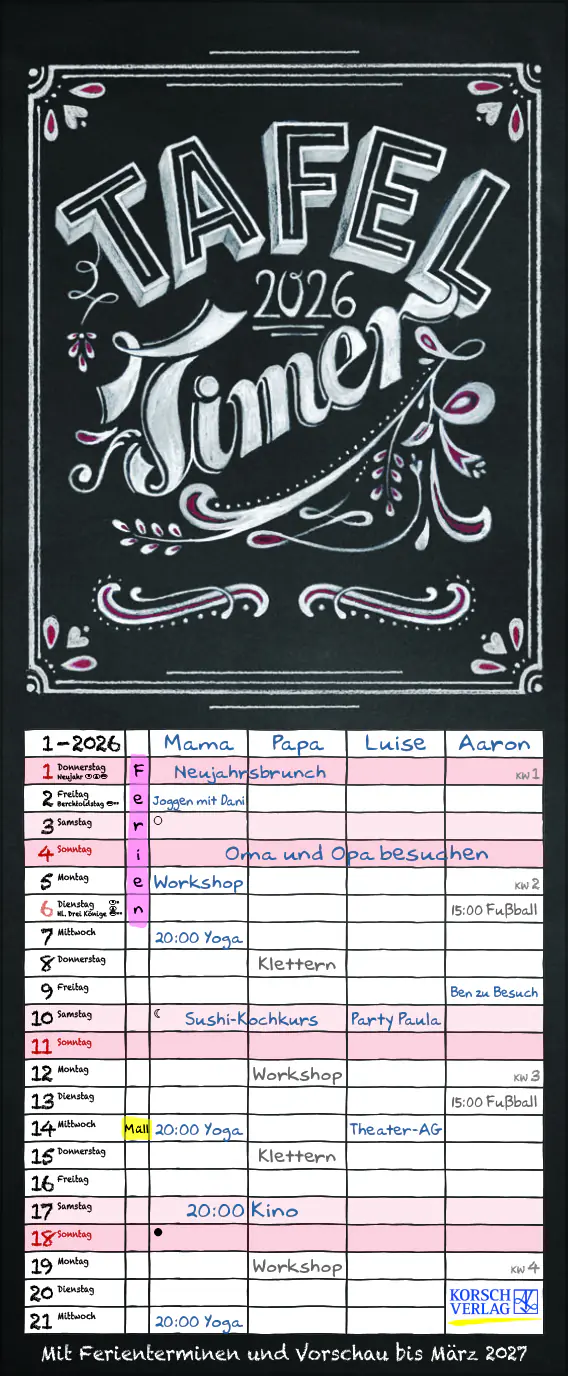 TAFEL
2026
Timer
1-2026 Mama Papa Luise Aaron
1 Donnerstag Neujahr Neujahrsbrunch KW 1
2 Freitag Berchtoldstag Joggen mit Dani
3 Samstag
4 Sonntag Oma und Opa besuchen
5 Montag Workshop KW 2
6 Dienstag Hl. Drei Könige 15:00 Fußball
Ferien
7 Mittwoch 20:00 Yoga
8 Donnerstag Klettern
9 Freitag Ben zu Besuch
10 Samstag Sushi-Kochkurs Party Paula
11 Sonntag
12 Montag Workshop KW 3
13 Dienstag 15:00 Fußball
14 Mittwoch Müll 20:00 Yoga Theater-AG
15 Donnerstag Klettern
16 Freitag
17 Samstag 20:00 Kino
18 Sonntag
19 Montag Workshop KW 4
20 Dienstag
21 Mittwoch 20:00 Yoga
KORSCH
VERLAG
Mit Ferienterminen und Vorschau bis März 2027